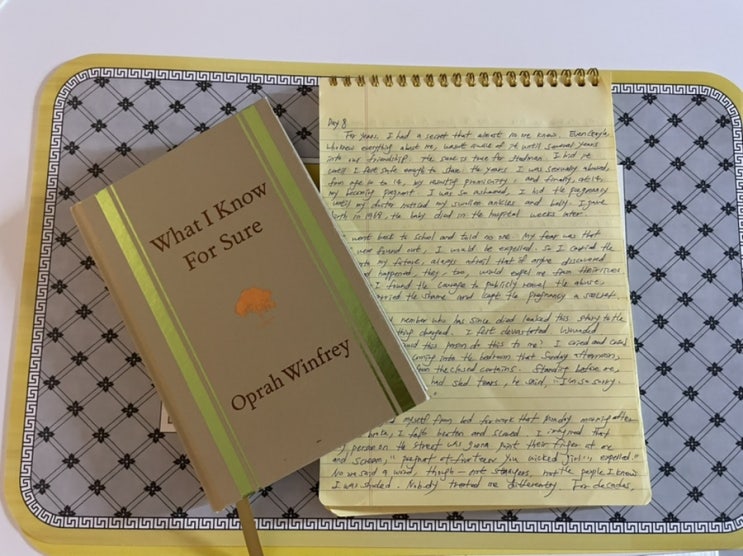 What I Know
For Sure
Oprah Winfrey
Day 8
For years, I had a secret that almost no one knew. Even Gayle,
who knew everything about me, wasn't aware of it until several years
into our friendship. The same is true for Stedman. I hid it
until I felt safe enough to share: the years I was sexually abused,
from age 10 to 14, my resulting promiscuity, and finally, at 14,
my becoming pregnant. I was so ashamed, I hid the pregnancy
until my doctor noticed my swollen ankles and belly. I gave
birth in 1968. the baby died in the hospital weeks later.
went back to school and told no one. My fear was that
were found out, I would be expelled. So I carried the
my future, always afraid that if anyone discovered
had happened, they, too, would expel me from their lives.
I found the courage to publicly reveal the abuse,
carried the shame and kept the pregnancy a secret.
member who has since died leaked this story to the
changed. I felt devastated. Wounded
this person do this to me? I cried and cried
coming into the bedroom that Sunday afternoon,
the closed curtains. Standing before me,
had shed tears, He said, "I'm so sorry.
myself from bed for work that Monday morning after
I felt beaten and scared. I imagined that
person on the street was gonna point their finger at me
and scream, "pregnant at fourteen you wicked girl... expelled."
No one said a word, though — not strangers, not the people I knew.
I was shocked. Nobody treated me differently. For decades,